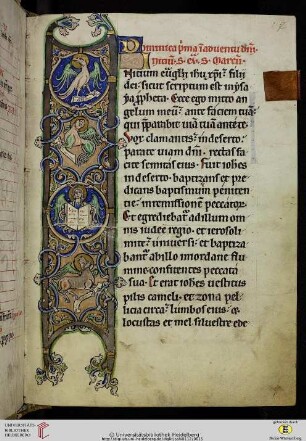 Dominica pma i aduentu dni
iniciu. s. eu. s. Marcu.
Nitium eugłii ihu xpi filii
dei. sicut scriptum est in ysa
ia ppheta. Ecce ego mitto an
gelum meu. ante faciem tua.
qui pparabit uia tua ante te.
Vox clamantis in deserto.
parate uiam dni. rectas fa
cite semitas eius. Fuit iohes
in deserto. baptizans et pre
dicans baptismum peniten
tie in remissionē peccatorꝫ.
Et egrediebat ad illum om
nis iudee regio. et ierosoli
mite uniuersi. et baptiza
bant ab illo in iordane flu
mine. confitentes peccata
sua. Et erat iohes uestitus
pilis cameli. et zona pel
licia circa lumbos eius. et
locustas et mel siluestre ede
UNIVERSITÄTS-
BIBLIOTHEK
HEIDELBERG
© Universitätsbibliothek Heidelberg